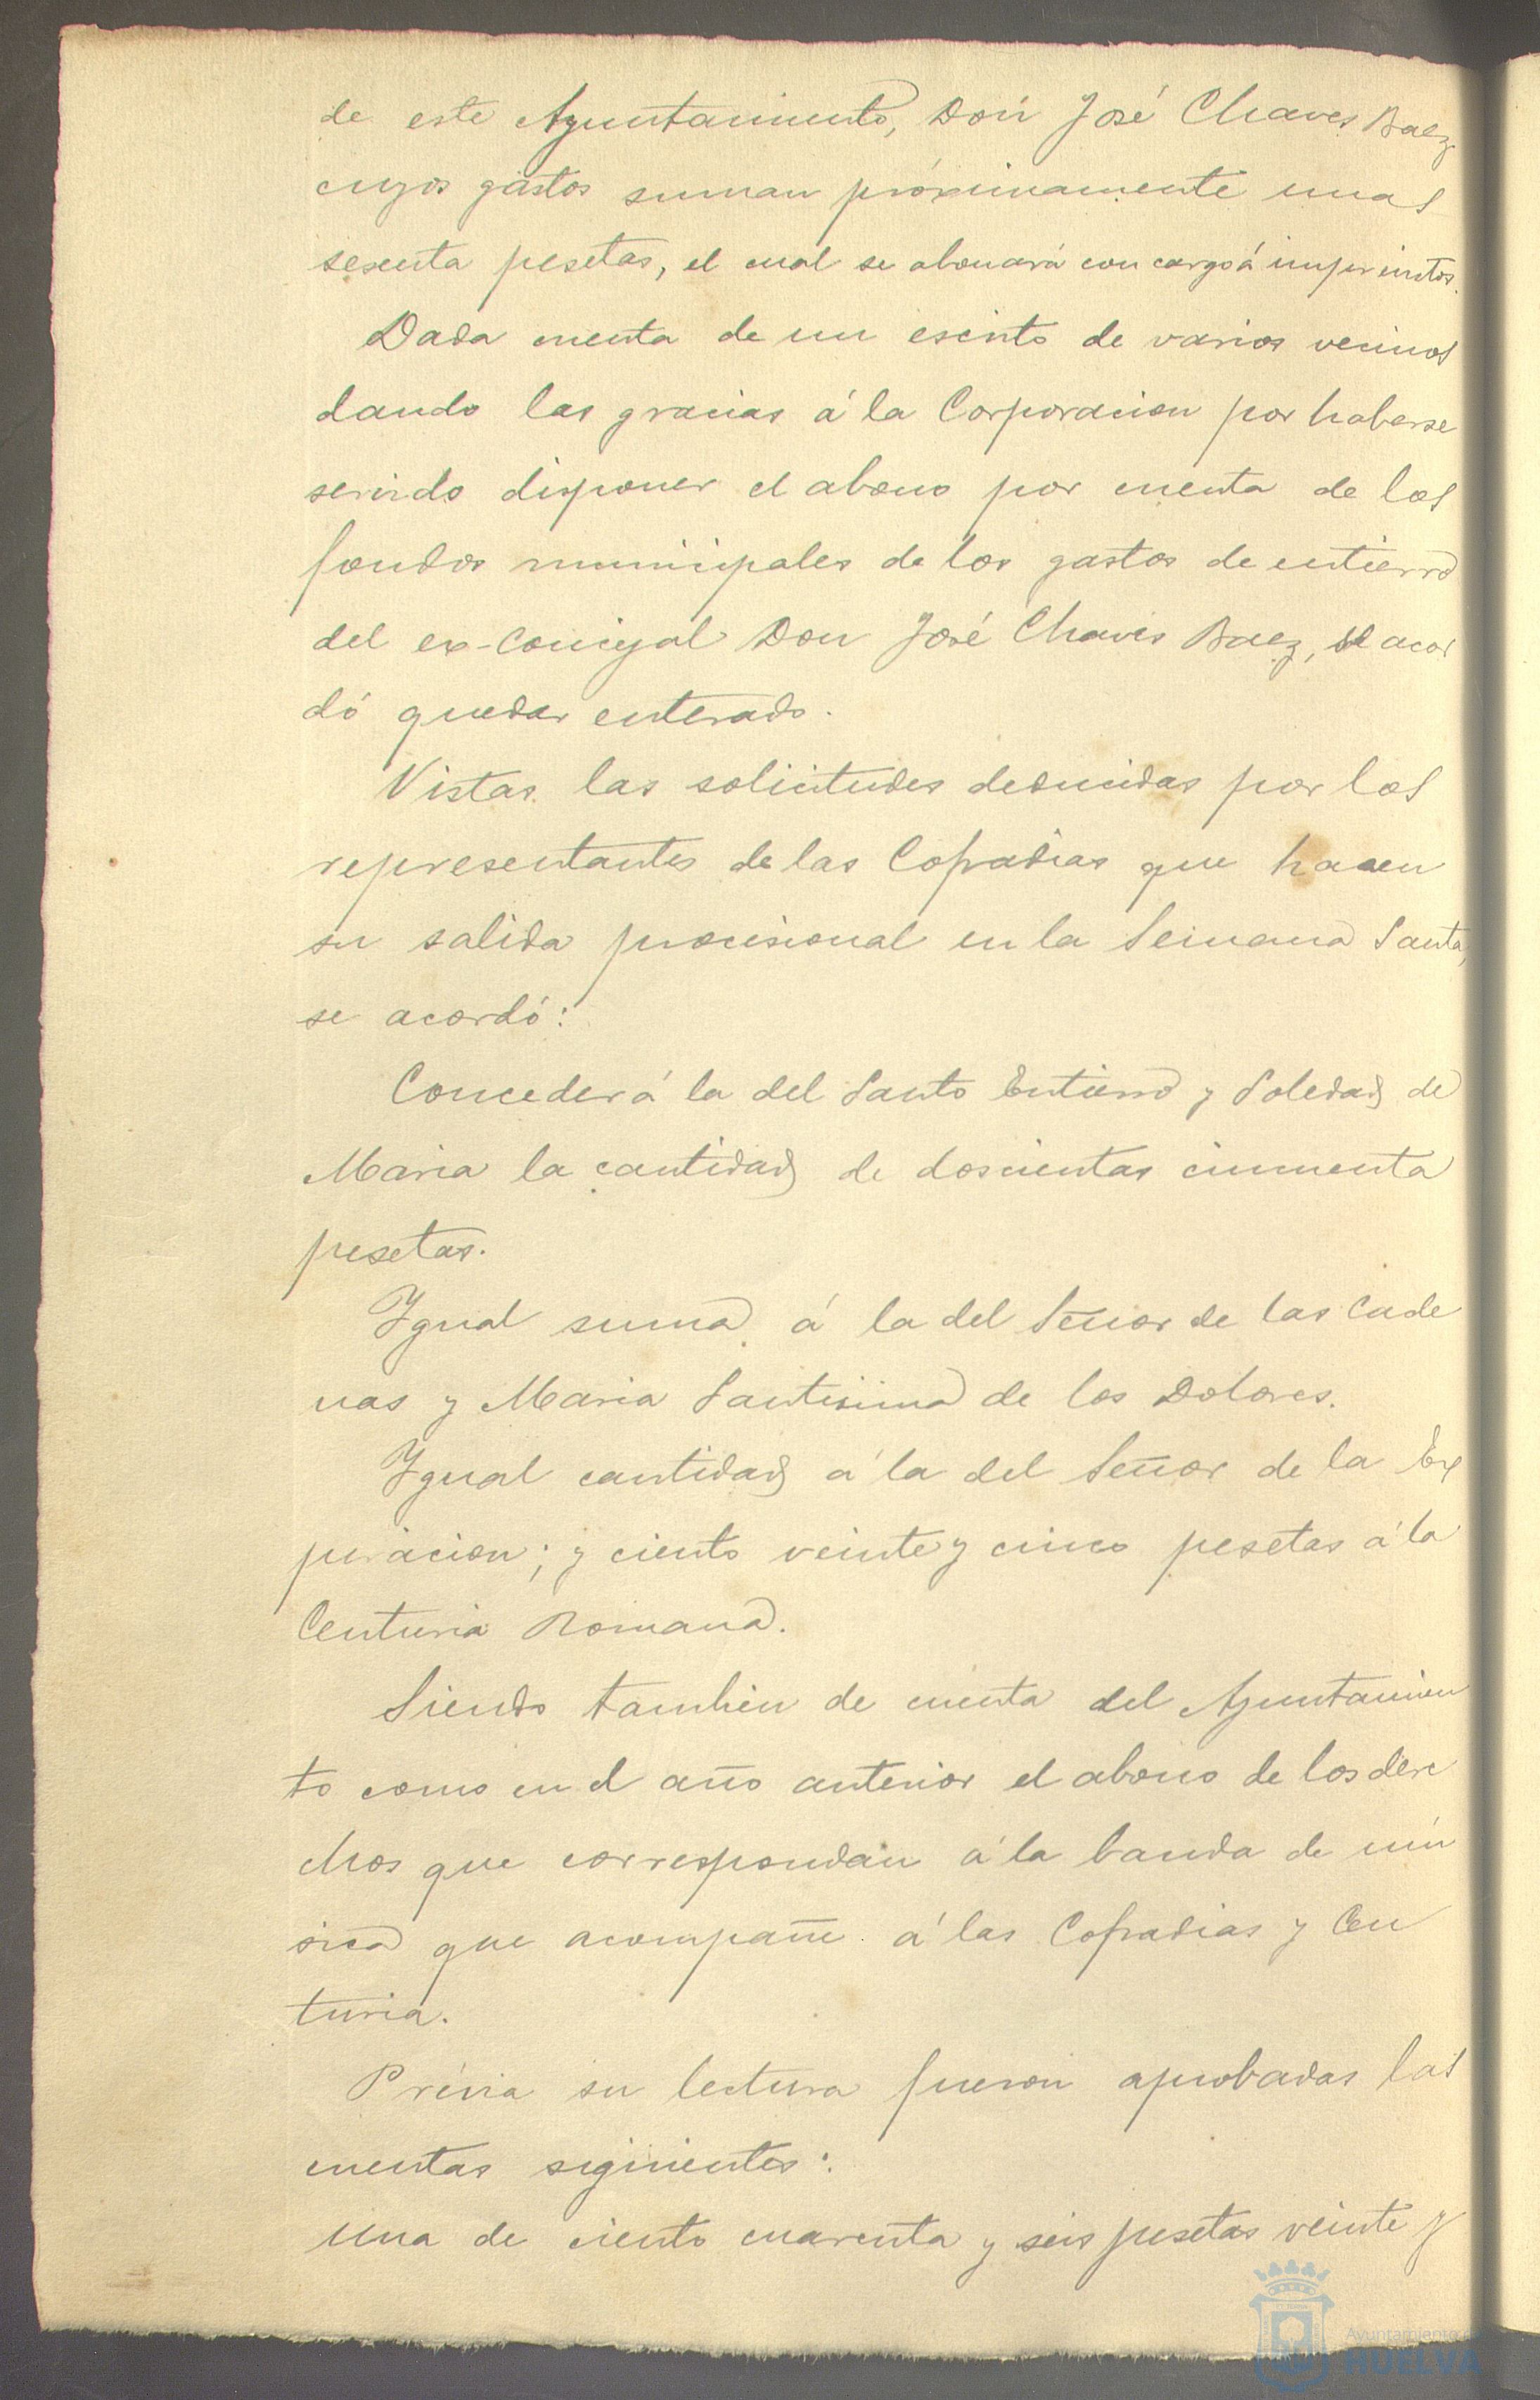 de este Ayuntamiento, Don José Chaves Baez
cuyos gastos suman próximamente unas
sesenta pesetas, el cual se abonará con cargo á imprevistos.
Dada cuenta de un escrito de varios vecinos
dando las gracias á la Corporacion por haberse
servido disponer el abono por cuenta de los
fondos municipales de los gastos de entierro
del ex-Concejal Don José Chaves Baez, se acor
dó quedar enterado.
Vistas las solicitudes deducidas por los
representantes de las Cofradias que hacen
su salida procesional en la Semana Santa,
se acordó:
Conceder á la del Santo Entierro y Soledad de
Maria la cantidad de doscientas cincuenta
pesetas.
Igual suma á la del Señor de las Cade
nas y Maria Santisima de los Dolores.
Igual cantidad á la del Señor de la Ex
piracion; y ciento veinte y cinco pesetas á la
Centuria Romana.
Siendo tambien de cuenta del Ayuntamien
to como en el año anterior el abono de los dere
chos que correspondan á la banda de mú
sica que acompañe á las Cofradias y Cen
turia.
Prévia su lectura fueron aprobadas las
cuentas siguientes:
Una de ciento cuarenta y seis pesetas veinte y
Ayuntamiento
HUELVA